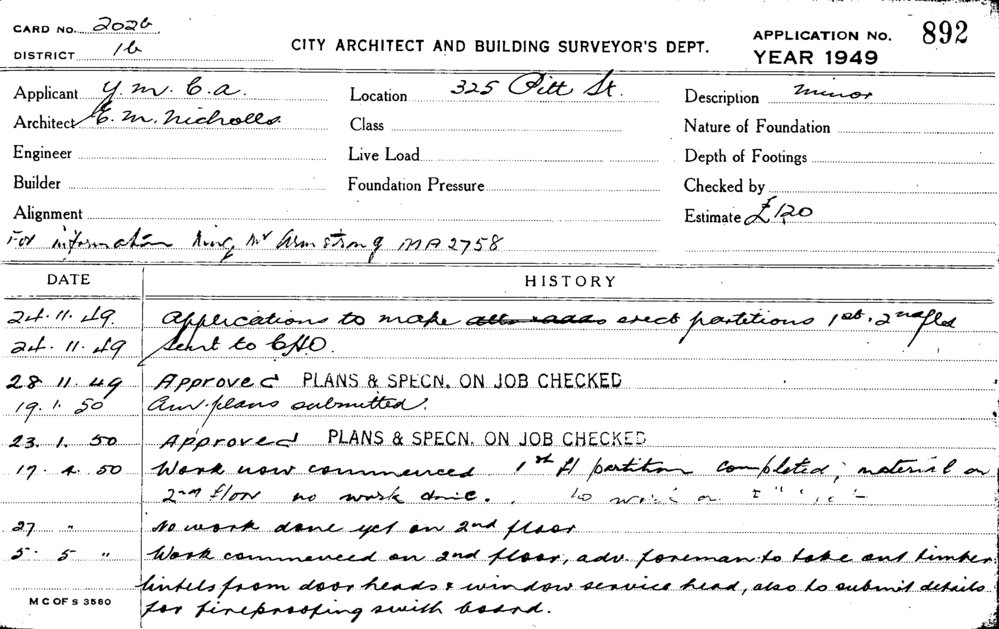 CARD NO. 202b
DISTRICT 1b
CITY ARCHITECT AND BUILDING SURVEYOR'S DEPT.
APPLICATION NO. 892
YEAR 1949
Applicant Y.M.C.A. Location 325 Pitt St. Description minor
Architect E. M. Nicholls Class Nature of Foundation
Engineer Live Load Depth of Footings
Builder Foundation Pressure Checked by
Alignment Estimate £120
For information ring Mr Armstrong MA2758
DATE HISTORY
24.11.49. Applications to make erect partitions 1st. 2nd flrs
24.11.49 Sent to CHO.
28 11 49 Approved PLANS & SPECN. ON JOB CHECKED
19.1.50 Am. plans submitted.
23.1.50 Approved PLANS & SPECN. ON JOB CHECKED
17.4.50 Work now commenced 1st fl partition completed; material on
2nd floor no work done.
27 " No work done yet on 2nd floor
5. 5 " Work commenced on 2nd floor, adv. foreman to take out timber
lintels from door heads & window service head, also to submit details
for fireproofing swith board.
M C OF S 3560